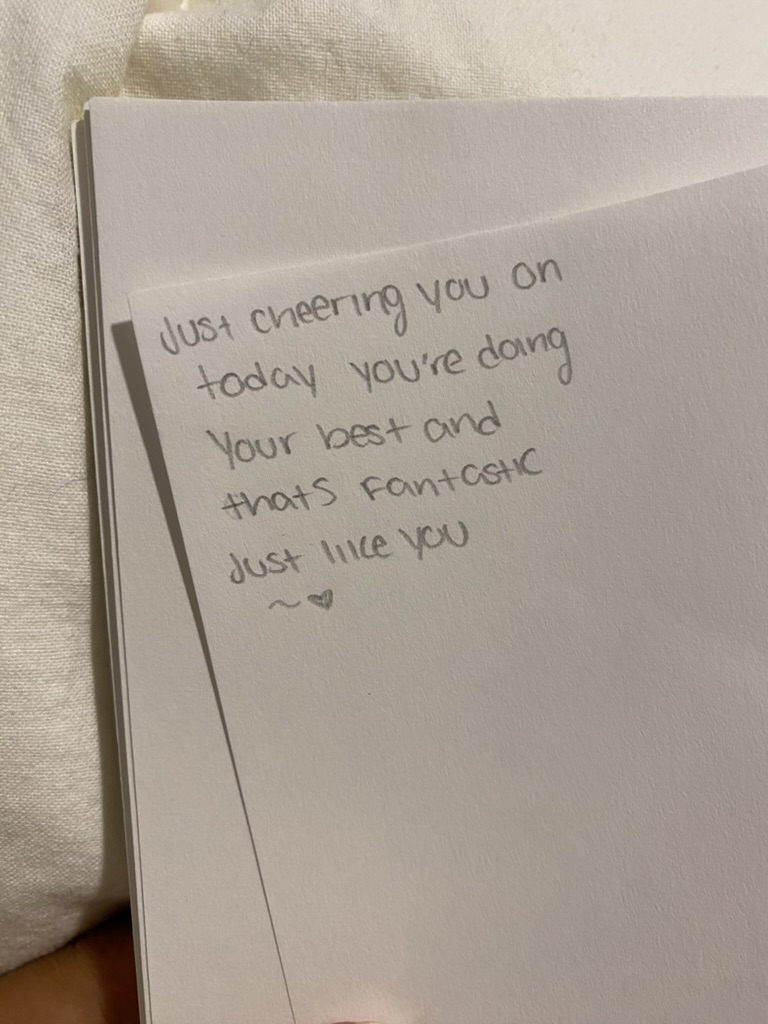 Just cheering you on
today you're doing
your best and
thats Fantastic
Just like you
~♥